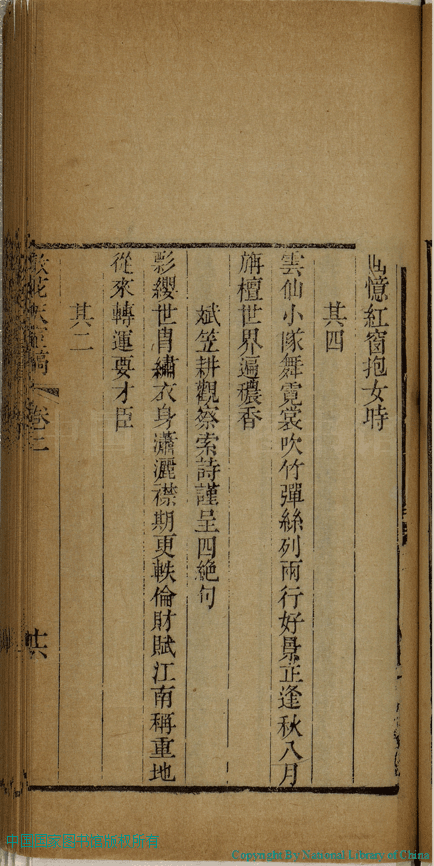 回憶紅窗抱女時
其四
雲仙小隊舞霓裳吹竹彈絲列兩行好景正逢秋八月
旃檀世界遍穠香
斌笠耕觀察索詩謹呈四絕句
彯纓世胄繡衣身瀟灑襟期更軼倫財賦江南稱重地
從來轉運要才臣
其二
卷二
Copyright By National Library of China